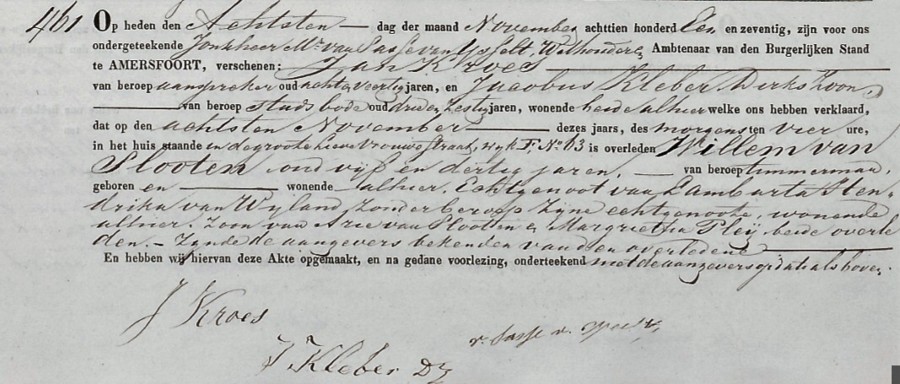 461 Op heden den Achtsten dag der maand November achttien honderd Een en zeventig, zijn voor ons
ondergeteekende Jonkheer Mr van Sasse van Ysselt Wethouder, Ambtenaar van den Burgerlijken Stand
te AMERSFOORT, verschenen: Jan Kroes
van beroep aanspreker oud acht en veertig jaren, en Jacobus Kleber Dirks Zoon,
van beroep stads bode oud drie en zestig jaren, wonende beide alhier welke ons hebben verklaard,
dat op den achtsten November dezes jaars, des morgens ten vier ure,
in het huis staande in de groote lieve vrouwe straat, wyk F, No 63 is overleden Willem van
Slooten, oud vijf en dertig jaren, van beroep timmerman,
geboren en wonende alhier. Echtgenoot van Lamberta Hen-
drika van Wyland, zonder beroep zyne echtgenoote, wonende
alhier. Zoon van Arie van Slooten en Margrietha Pleij beide overle
den. - Zynde de aangevers bekenden van den overledene
En hebben wij hiervan deze Akte opgemaakt, en na gedane voorlezing, onderteekend met de aangevers op dato als boven.
J Kroes
v. Sasse v. Ysselt
J Kleber Dz